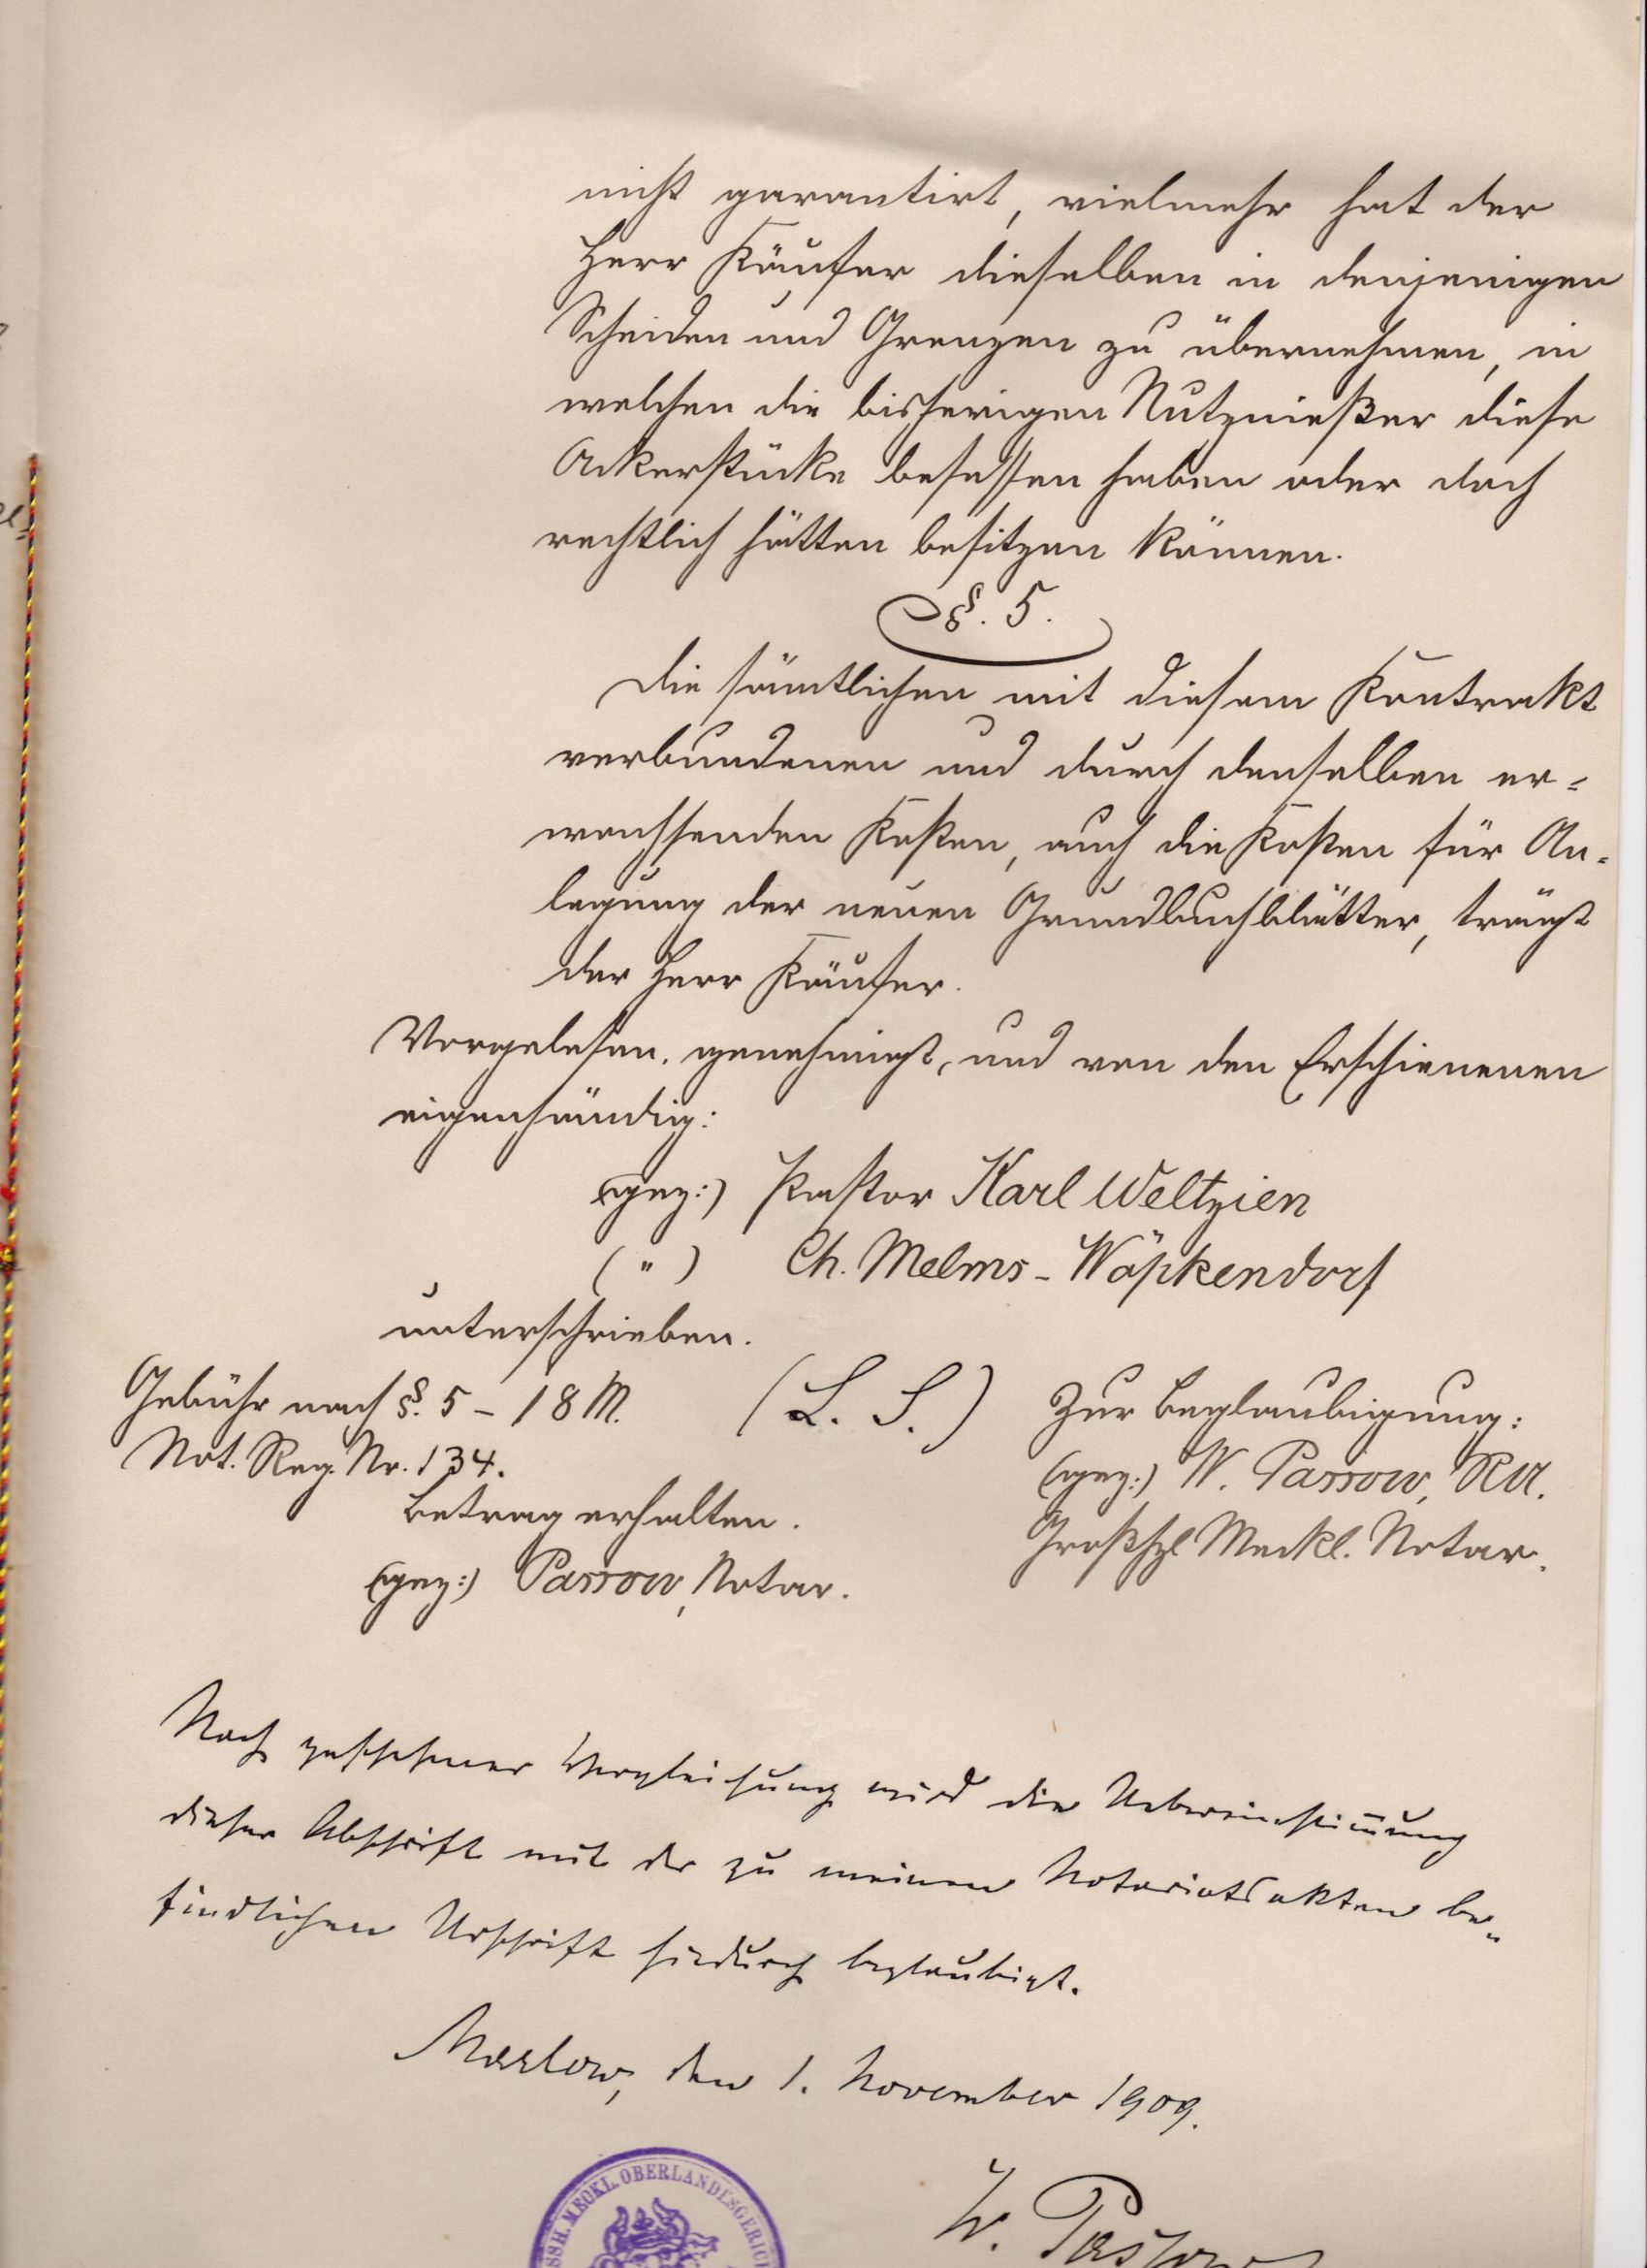 nicht garantirt, vielmehr hat der
Herr Käufer dieselben in denjenigen
Scheiden und Grenzen zu übernehmen, in
welchen die bisherigen Nutznießer diese
Ackerstücke besessen haben oder doch
rechtlich hätten besitzen können.
§. 5.
Die sämtlichen mit diesem Kontrakt
verbundenen und durch denselben er=
wachsenden Kosten, auch die Kosten für An=
legung der neuen Grundbuchblätter, trägt
der Herr Käufer.
Vorgelesen, genehmigt, und von den Erschienenen
eigenhändig:
(gez:) Pastor Karl Weltzien
( " ) Ch. Melms - Wöpkendorf
unterschrieben.
Gebühr nach §. 5 - 18 M. (L. S.) Zur Beglaubigung:
Not. Reg. Nr. 134. (gez:) W. Passow, RA.
Betrag erhalten. Großhzl Meckl. Notar.
(gez:) Passow, Notar.
Nach geschehener Vergleichung wird die Uebereinstim̅ung
dieser Abschrift mit der zu meinen Notariatsakten be=
findlichen Urschrift hiedurch beglaubigt.
Marlow, den 1. November 1909.
SSH. MECKL. OBERLANDESGERIC
W. Passow